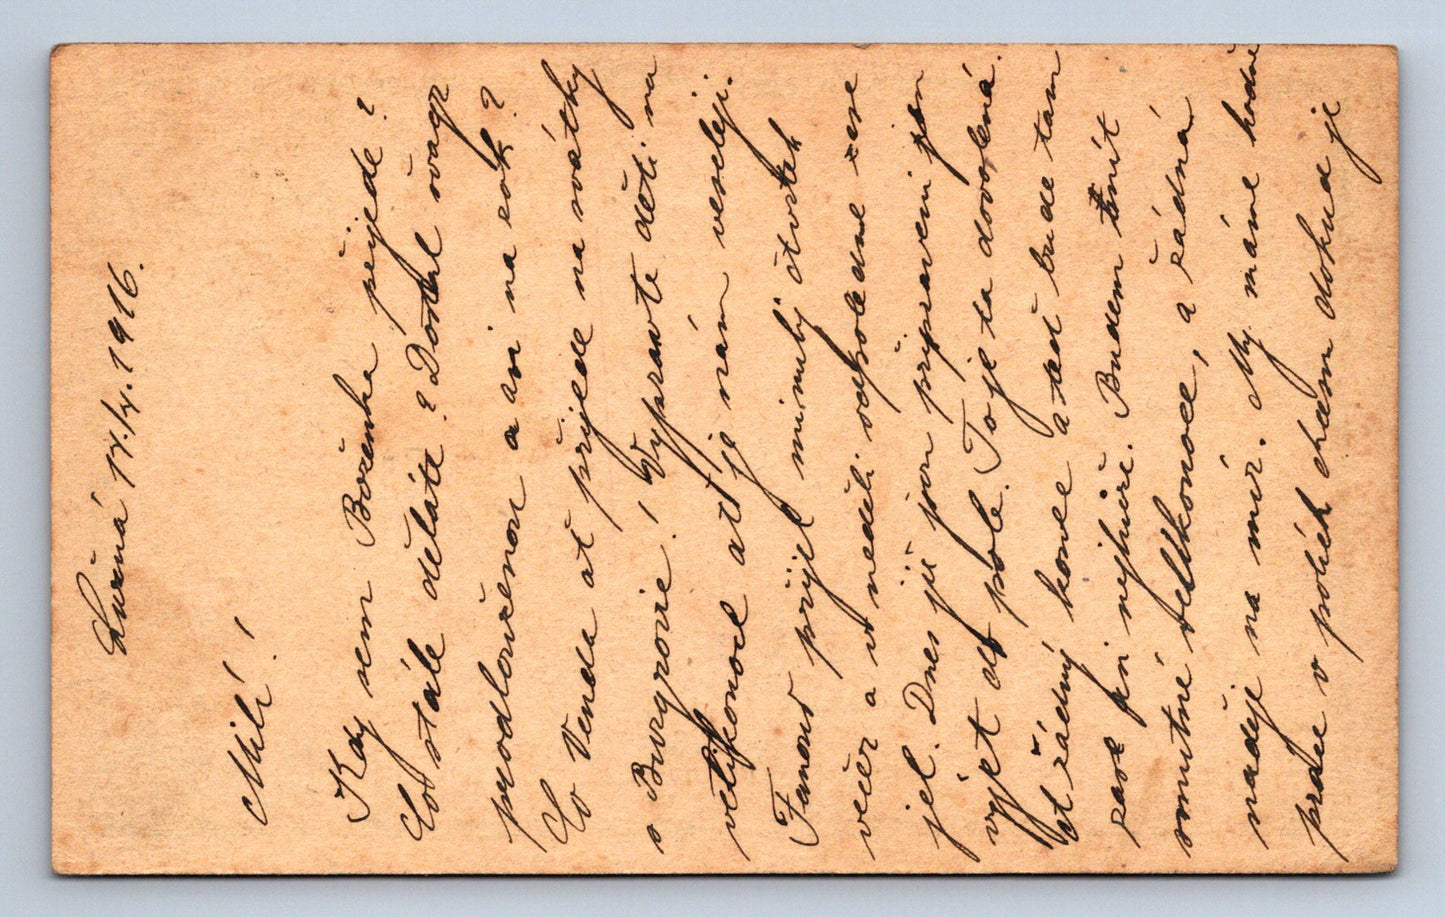 17./4. 1916.
Milí!
Kdy sem Boženka přijede?
Co stále děláte? Dostal Švagr
prodlouženou a ani na rok?
Co Venda ať přijede na svátky
o Burgrovic! Vypravte děti na
velikonoce ať je nám veseleji.
Fanouš přijel minulý čtvrtek
večer a v neděli odpoledne zase
jel. Dnes již jsou připraveni jen
vyjet do pole. To je ta dovolená.
Strádný konec a teď bude tam
zase při nejhůře. Budem mít
smutné velikonoce, a žádná
naděje na mír. My máme hodně
práce v polích chcem dokud je